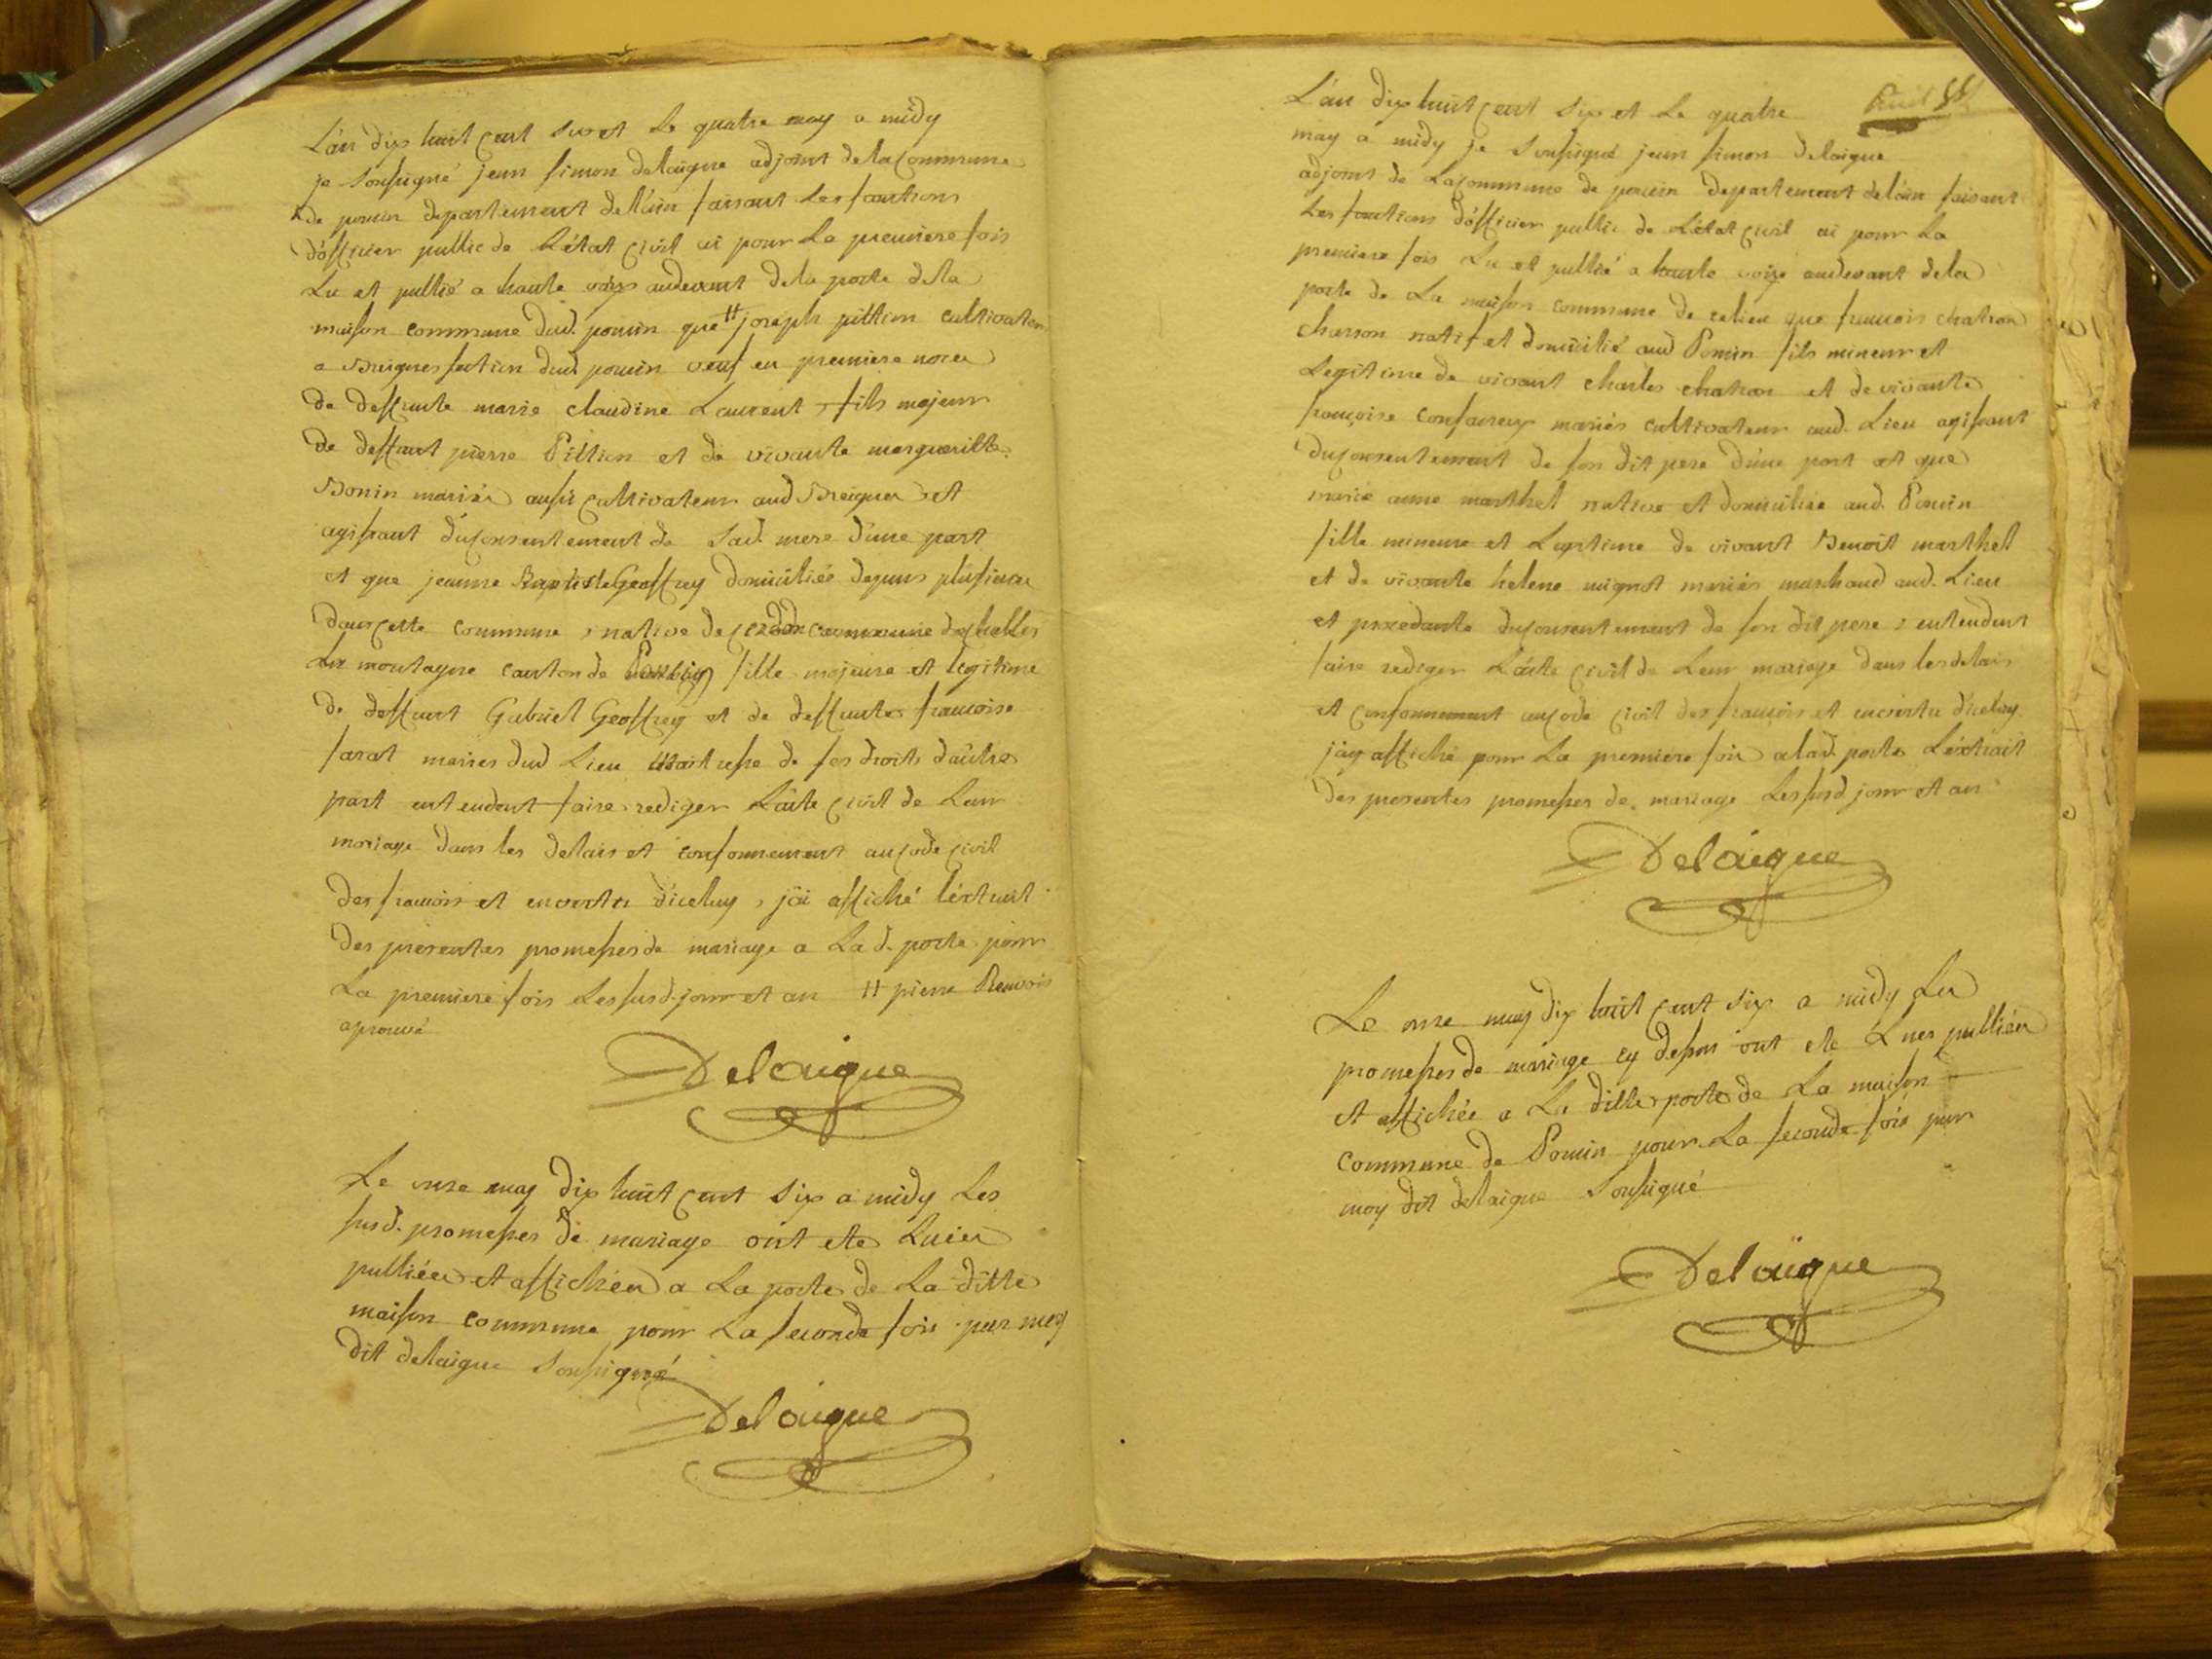 L'an dix huit cent six et Le quatre may a midy
je Soussigné jean simon delaigue adjoint de la Commune
de pouin departement de l'ain faisant Les fonctions
d'officier public de L'état civil ai pour La premiere fois
Lu et publié a haute voix audevant de la porte de la
maison commune dud. pouin que # joseph pittion cultivateur
a Breignes section dud. pouin veuf en premiere noces
de deffunte marie claudine Laurent, fils majeur
de deffunt pierre Pittion et de vivante margueritte
Bonin mariés aussi cultivateur aud Breignes et
agissant du consentement de Sad. mere d'une part
et que jeanne Baptiste Geoffrey domiciliée depuis plusieurs
dans cette commune, native de commune de
La montagne canton de fille majeure et legitime
de deffunt Gabriel Geoffrey et de deffunte francoise
farat mariés dud Lieu Maitresse de ses droits d'autre
part entendent faire rediger L'acte civil de Leur
mariage dans les delais et conformement au code civil
des francois et en vertu d'iceluy, j'ai affiché l'extrait
des presentes promesses de mariage a La d. porte pour
La premiere fois Les susd. jour et an # pierre
aprouvé
Delaigue
Le onze may dix huit cent Six a midy Les
susd. promesses de mariage ont ete Luies
publiées et affichées a La porte de La ditte
maison commune pour La seconde fois par moy
dit delaigue Soussigné
Delaigue
L'an dix huit cent Six et Le quatre
may a midy je Soussigné jean simon delaigue
adjoint de La commune de pouin departement de l'ain faisant
Les fonctions d'officier public de L'état civil ai pour La
premiere fois Lu et publié a haute voix audevant de la
porte de La maison commune de ce lieu que francois chatron
charron natif et domicilié aud Pouin fils mineur et
Legitime de vivant charles chatron et de vivante
françoise mariés cultivateur aud. Lieu agissant
du consentement de son dit pere d'une part et que
marie anne marthel native et domiciliée aud. Pouin
fille mineure et Legitime de vivant Benoit marthel
et de vivante helene mignot mariés marchand aud. Lieu
et procedante du consentement de son dit pere ; entendent
faire rediger L'acte civil de Leur mariage dans les delais
et conformement au code civil des françois et en vertu d'iceluy
j'ay affiché pour La premiere fois a lad. porte L'extrait
des presentes promesses de mariage Les susd jour et an
Delaigue
Le onze may dix huit cent six a midy Les
promesses de mariage cy dessus ont ete Lues publiées
et affichée a La ditte porte de La maison
commune de Pouin pour La seconde fois par
moy dit delaigue Soussigné
Delaigue